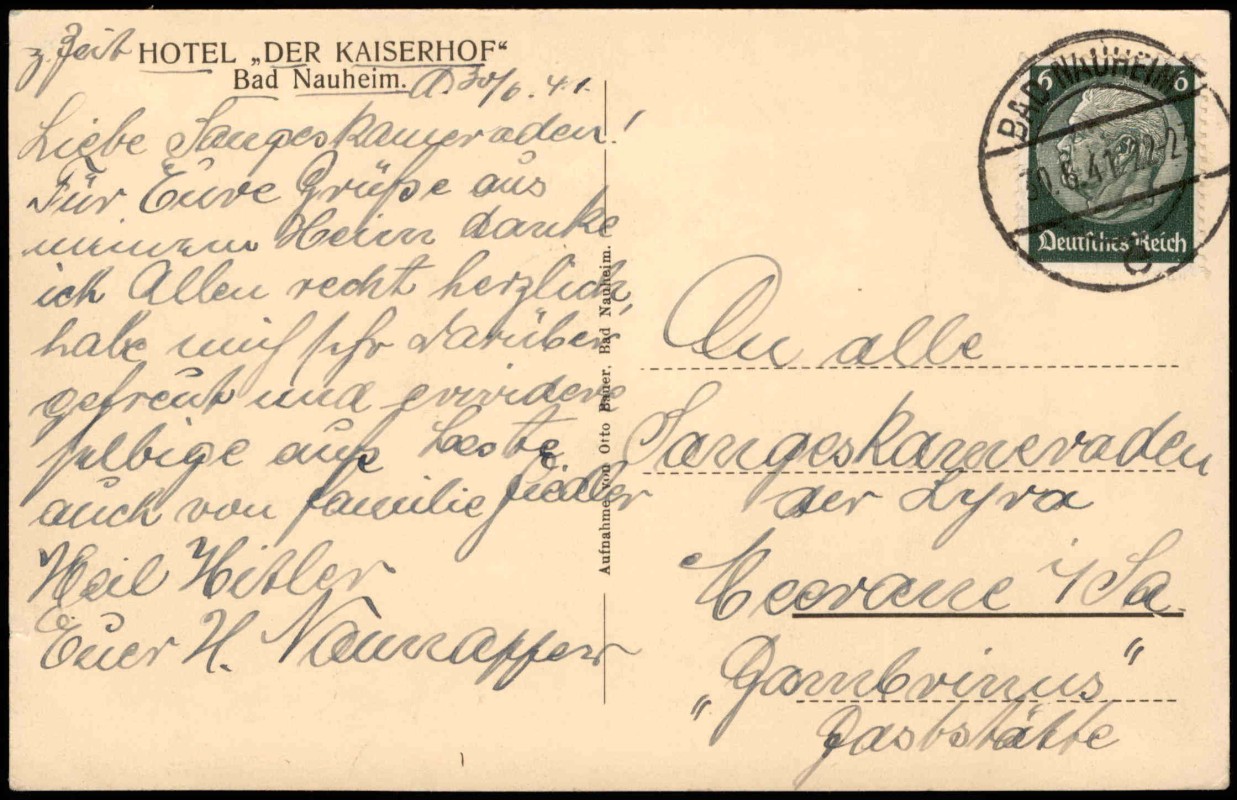 z. Zeit HOTEL „DER KAISERHOF“
Bad Nauheim. d. 30/6. 41.
Liebe Sangeskameraden!
Für Eure Grüße aus
meinem Heim danke
ich Allen recht herzlich,
habe mich sehr darüber
gefreut und erwidere
selbige aufs beste
auch von Familie Fiedler
Heil Hitler
Euer H.
Aufnahme von Otto Bauer, Bad Nauheim.
BAD NAUHEIM
30.6.41.22-23
e
6 6
Deutsches Reich
An alle
Sangeskameraden
der Lyra
Meerane i/Sa.
„Gambrinus“
Gaststätte